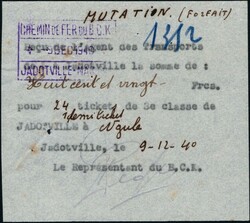 MUTATION. (FORFAIT)
CHEMIN DE FER DU B.C.K.
1312
JADOTVILLE
Reçu de l'Agent des Transports
de Jadotville la somme de:
Huit cent et vingt Frcs.
pour 24 tickets de 3e classe de
1 demi ticket
JADOTVILLE à
Jadotville, le 9-12-40
Le Représentant du B.C.K.